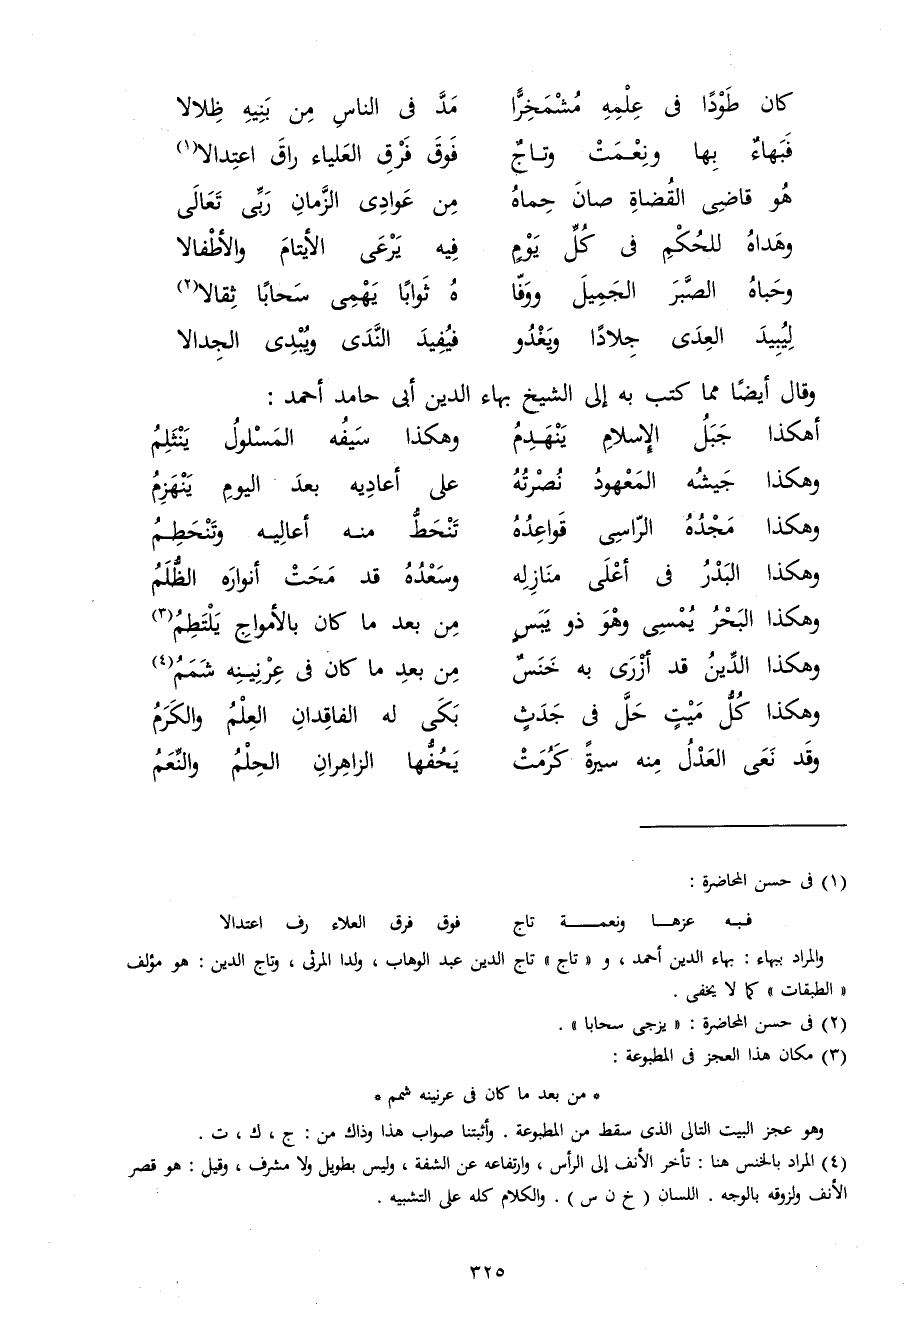 كان طَوْدًا فى عِلْمِهِ مُشْمَخِرًّا مَدَّ فى الناسِ مِن بَنِيهِ ظِلالا
فَبَهاءٌ بِها ونِعْمَتْ وتاجٌ فَوقَ فَرْقِ العَلياء راقَ اعتِدالا(١)
هُو قاضِى القُضاةِ صانَ حِماهُ مِن عَوادِى الزَّمانِ رَبِّى تَعَالَى
وهَداهُ للحُكْمِ فى كُلِّ يَوْمٍ فِيه يَرْعَى الأيتامَ والأطْفالا
وحَباهُ الصَّبَرَ الجَمِيلَ ووَفّا هُ ثَوابًا يَهْمِى سَحابًا ثِقالا(٢)
لِيُبِيدَ العِدَى جِلادًا ويَغْدُو فيُفِيدَ النَّدَى ويُبْدِى الجِدالا
وقال أيضًا مما كتب به إلى الشيخ بهاء الدين أبى حامد أحمد :
أهكذا جَبَلُ الإسلامِ يَنْهَدِمُ وهكذا سَيفُه المَسْلولُ يَنْثَلِمُ
وهكذا جَيشُه المَعْهودُ نُصْرتُهُ على أعادِيه بعدَ اليومِ يَنْهَزِمُ
وهكذا مَجْدُهُ الرّاسِى قَواعِدُهُ تَنْحَطُّ منه أعالِيه وتَنْحَطِمُ
وهكذا البَدْرُ فى أعْلَى مَنَازِلِه وسَعْدُهُ قد مَحَتْ أنوارَه الظُّلَمُ
وهكذا البَحْرُ يُمْسِى وهْوَ ذو يَبَسٍ مِن بعد ما كان بالأمواجِ يَلْتَطِمُ(٣)
وهكذا الدِّينُ قد أزْرَى به خَنَسٌ مِن بعدِ ما كان فى عِرْنِينِه شَمَمُ(٤)
وهكذا كُلُّ مَيْتٍ حَلَّ فى جَدَثٍ بَكَى له الفاقِدانِ العِلْمُ والكَرَمُ
وقَد نَعَى العَدْلُ مِنه سيرةً كَرُمَتْ يَحُفُّها الزاهِرانِ الحِلْمُ والنِّعَمُ
(١) فى حسن المحاضرة :
فبه عزها ونعمة تاج فوق فرق العلاء رف اعتدالا
والمراد ببهاء : بهاء الدين أحمد ، و « تاج » تاج الدين عبد الوهاب ، ولدا المرثى ، وتاج الدين : هو مؤلف
« الطبقات » كما لا يخفى .
(٢) فى حسن المحاضرة : « يزجى سحابا » .
(٣) مكان هذا العجز فى المطبوعة :
* من بعد ما كان فى عرنينه شمم *
وهو عجز البيت التالى الذى سقط من المطبوعة . وأثبتنا صواب هذا وذاك من : ج ، ك ، ت .
(٤) المراد بالخنس هنا : تأخر الأنف إلى الرأس ، وارتفاعه عن الشفة ، وليس بطويل ولا مشرف ، وقيل : هو قصر
الأنف ولزوقه بالوجه . اللسان ( خ ن س ) . والكلام كله على التشبيه .
٣٢٥